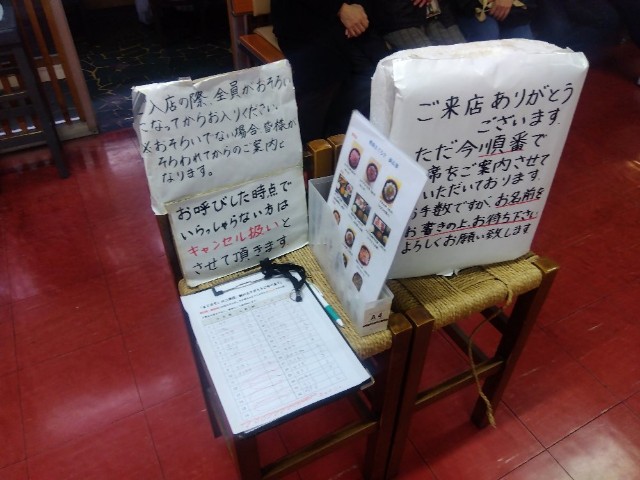 ご入店の際、全員がおそろい
になってからお入りください
※おそろいでない場合、皆様が
そろわれてからのご案内と
なります。
お呼びした時点で
いらっしゃらない方は
キャンセル扱いと
させて頂きます
ご来店ありがとう
ございます
ただ今順番で
席をご案内させて
いただいております
お手数ですが、お名前を
お書きの上、お待ち下さい
よろしくお願い致します
A4